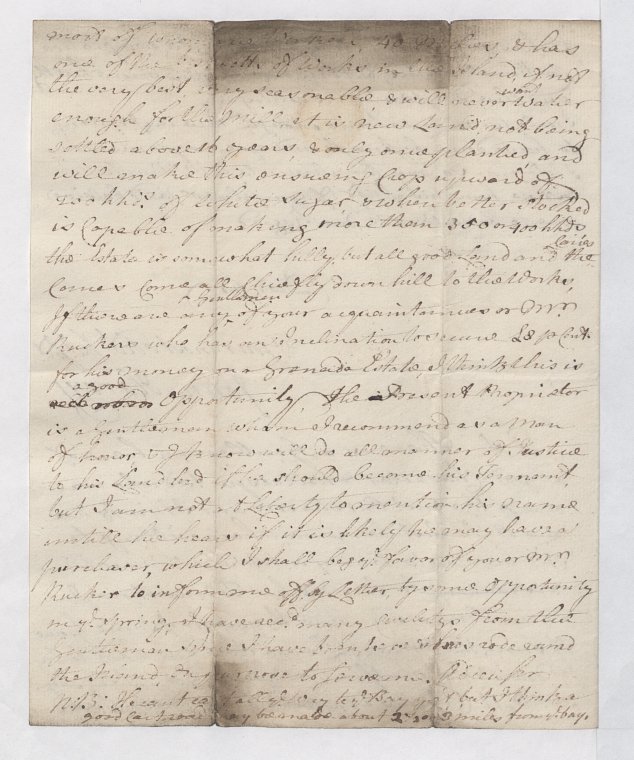 most of whom are Workers, 40 , & has
one of the Setts of Works in the Island, if not
the very best, very seasonable & will never want water
enough for the Mill it is new Land not being
settled above 16 years, & only once planted, and
will make this ensueing Crop upward of
hhds. of White Sugar & when better Stocked
is Capeble of making more then 350 or 400 hhds
the Estate is somewhat hilly, but all good Land and the Canes
Canes Come all Chiefly down hill to the Works,
If there are any Gentlemen of your acquaintances or Mr.
Ruckers who has an Inclination to secure 8 p Cent.
for his money on a Grenada Estate, I think this is
a good Opportunity, the Present Propriator
is a Gentleman whom I recommend as a Man
of honor & I know will do all manner of Justice
to his Land lord if he should become his Tennant
but I am not at Liberty to mention his name
untill he hears if it is likely he may have a
Purchaser, which I shall beg ye. favor of you or Mr.
Rucker to inform me off by Letter, by some Opportunity
in ye. Spring, I have recd. many Civilitys from this
Gentleman since I have been here & rode round
the Island,
NB: The Cant ye. Bay but I think a
good Cart road may be made about 2 or 3 miles from ye. bay.